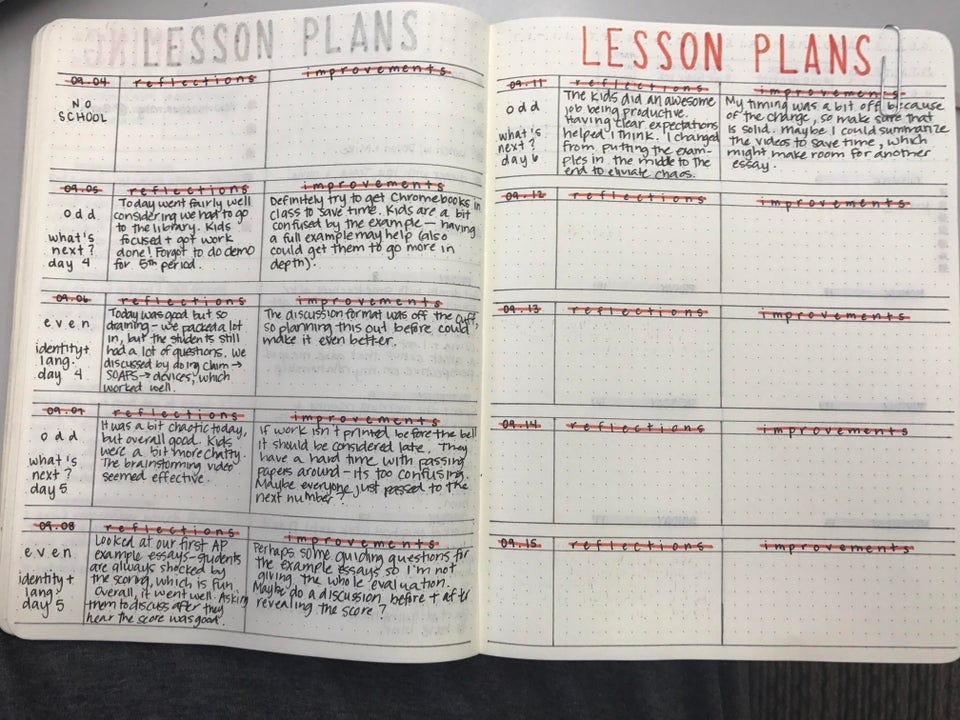 LESSON PLANS
09.04 reflections improvements
NO
SCHOOL
09.05 reflections improvements
odd
what's
next?
day 4
Today went fairly well
considering we had to go
to the library. Kids
focused + got work
done! Forgot to do demo
for 5th period.
Definitely try to get Chromebooks in
class to save time. Kids are a bit
confused by the example – having
a full example may help (also
could get them to go more in
depth).
09.06 reflections improvements
even
identity+
lang.
day 4
Today was good but so
draining – we packed a lot
in, but the students still
had a lot of questions. We
discussed by doing claim →
SOAPS → devices, which
worked well.
The discussion format was off the cuff,
so planning this out before could
make it even better.
09.07 reflections improvements
odd
what's
next?
day 5
It was a bit chaotic today,
but overall good. Kids
were a bit more chatty.
The brainstorming video
seemed effective.
If work isn't printed before the bell
it should be considered late. They
have a hard time with passing
papers around – its too confusing.
Maybe everyone just passed to the
next number?
09.08 reflections improvements
even
identity+
lang.
day 5
Looked at our first AP
example essays – students
are always shocked by
the scoring, which is fun.
Overall, it went well. Asking
them to discuss after they
hear the score was good.
Perhaps some guiding questions for
the example essays so I'm not
giving the whole evaluation.
Maybe do a discussion before + after
revealing the score?
LESSON PLANS
09.11 reflections improvements
odd
what's
next?
day 6
The kids did an awesome
job being productive.
Having clear expectations
helped I think. I changed
from putting the exam-
ples in the middle to the
end to elviate chaos.
My timing was a bit off because
of the change, so make sure that
is solid. Maybe I could summarize
the videos to save time, which
might make room for another
essay.
09.12 reflections improvements
09.13 reflections improvements
09.14 reflections improvements
09.15 reflections improvements